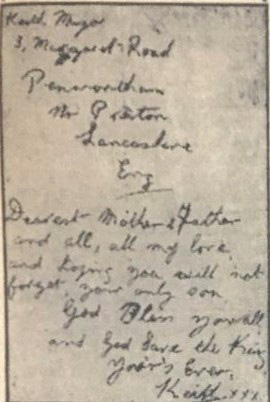 Keith Mayor
3, Margaret Road
Penwortham
Nr Preston
Lancashire
Eng
Dearest Mother & Father
and all, all my love
and hoping you will not
forget your only son
God Bless you all
and God Save the King
Your's Ever,
Keith xxx